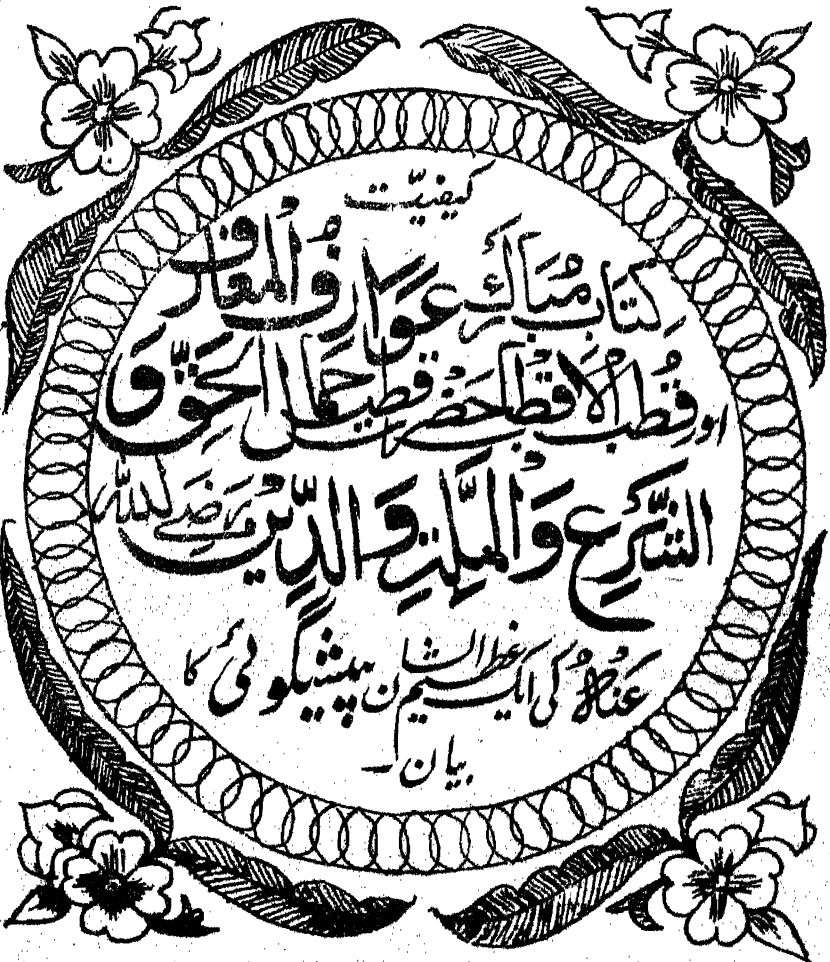 کیفیّت
کِتَابِ مُبَارَک عَوَارِفُ الْمَعَارِف
اور قُطْبُ الْاَقْطَاب حَضْرت قُطْب جَمَالُ الْحَقِّ وَ
الشَّرْعِ وَالْمِلَّةِ وَ الدِّیْن رَضِیَ اللّٰہ
عَنْہُ کی ایک عظیم الشان پیشیگوئی کا
بیان۔